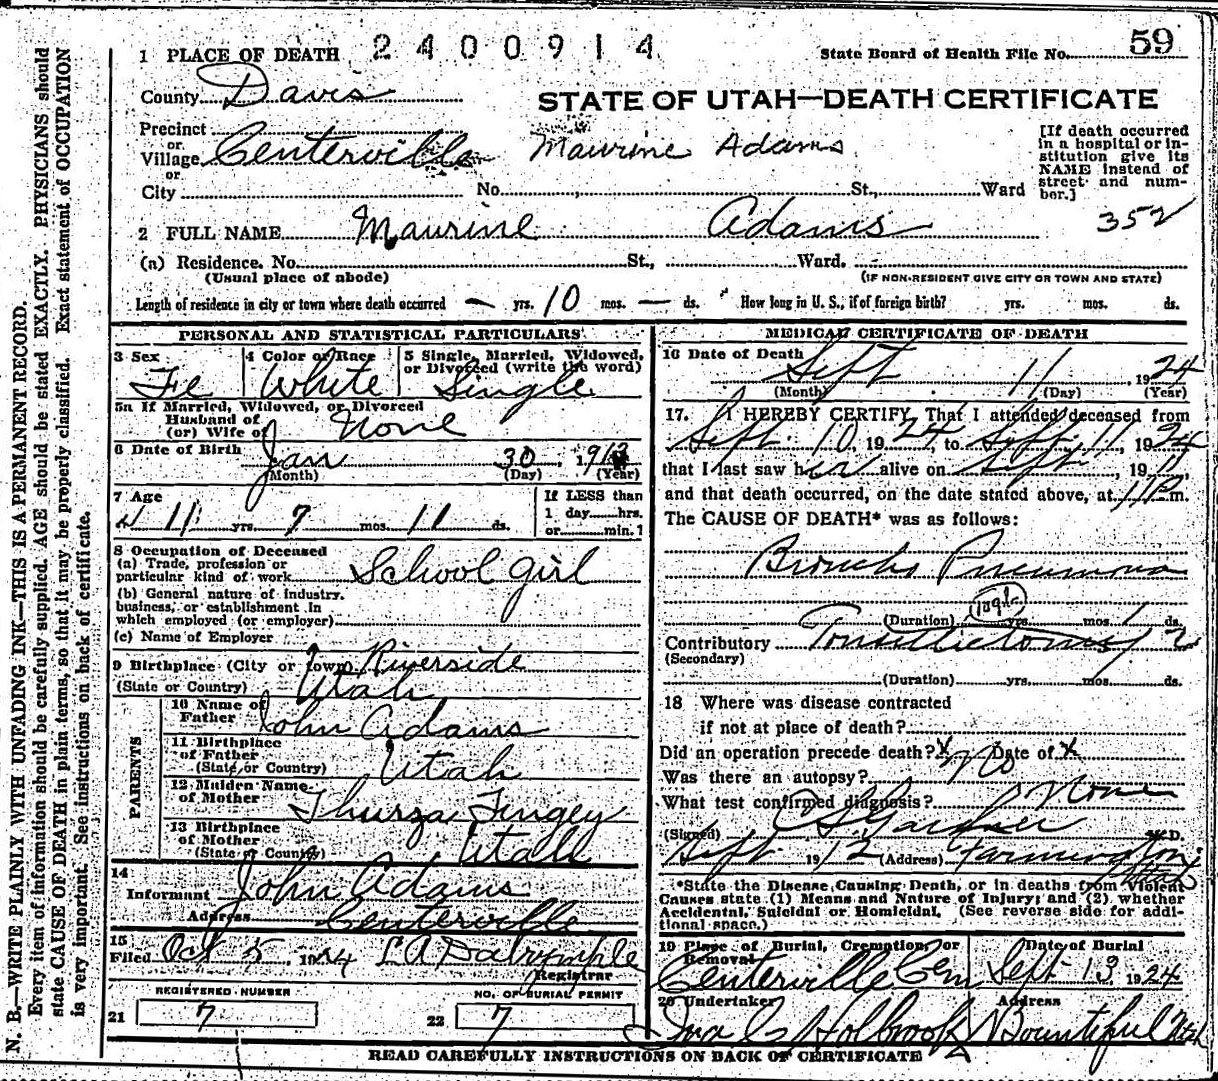 1 PLACE OF DEATH 2400914 State Board of Health File No. 59
County Davis
STATE OF UTAH—DEATH CERTIFICATE
Precinct
or
Village Centerville Maurine Adams
or
City No. St., Ward
[If death occurred
in a hospital or in-
stitution give its
NAME instead of
street and num-
ber.]
352
2 FULL NAME Maurine Adams
(a) Residence. No. St., Ward.
(Usual place of abode) (IF NON-RESIDENT GIVE CITY OR TOWN AND STATE)
Length of residence in city or town where death occurred — yrs. 10 mos. — ds. How long in U. S., if of foreign birth? yrs. mos. ds.
PERSONAL AND STATISTICAL PARTICULARS
3 Sex 4 Color or Race 5 Single, Married, Widowed,
or Divorced (write the word)
Fe White Single
5a If Married, Widowed, or Divorced
Husband of
(or) Wife of None
6 Date of Birth Jan 30, 191
(Month) (Day) (Year)
7 Age If LESS than
1 day hrs.
or min.
11 yrs. 7 mos. 11 ds.
8 Occupation of Deceased
(a) Trade, profession or
particular kind of work School girl
(b) General nature of industry,
business, or establishment in
which employed (or employer)
(c) Name of Employer
9 Birthplace (City or town) Riverside
(State or Country) Utah
PARENTS
10 Name of
Father John Adams
11 Birthplace
of Father
(State or Country) Utah
12 Maiden Name
of Mother Thurza Tingey
13 Birthplace
of Mother
(State or Country) Utah
14
Informant John Adams
Address Centerville
15
Filed Oct 5, 1924 L A Dalrymple
Registrar
REGISTERED NUMBER NO. OF BURIAL PERMIT
21 7 22 7
MEDICAL CERTIFICATE OF DEATH
16 Date of Death
Sept 11, 1924
(Month) (Day) (Year)
17. I HEREBY CERTIFY, That I attended deceased from
Sept. 10 1924, to Sept. 11, 1924
that I last saw her alive on Sept 11, 19
and that death occurred, on the date stated above, at 11 P m.
The CAUSE OF DEATH* was as follows:
Broncho Pneumonia
(Duration) yrs. mos. 1 ds.
Contributory Tonsillectomy 2
(Secondary)
(Duration) yrs. mos. ds.
18 Where was disease contracted
if not at place of death?
Did an operation precede death? x No Date of x
Was there an autopsy?
What test confirmed diagnosis? None
(Signed) C S Gardner M.D.
Sept 1912 (Address) Farmington Utah
*State the Disease Causing Death, or in deaths from Violent
Causes state (1) Means and Nature of Injury; and (2) whether
Accidental, Suicidal or Homicidal. (See reverse side for addi-
tional space.)
19 Place of Burial, Cremation, or Date of Burial
Removal
Centerville Cem Sept 13 1924
20 Undertaker Address
Holbrook Bountiful Utah
READ CAREFULLY INSTRUCTIONS ON BACK OF CERTIFICATE
N. B.—WRITE PLAINLY WITH UNFADING INK—THIS IS A PERMANENT RECORD.
Every item of information should be carefully supplied. AGE should be stated EXACTLY. PHYSICIANS should
state CAUSE OF DEATH in plain terms, so that it may be properly classified. Exact statement of OCCUPATION
is very important. See instructions on back of certificate.